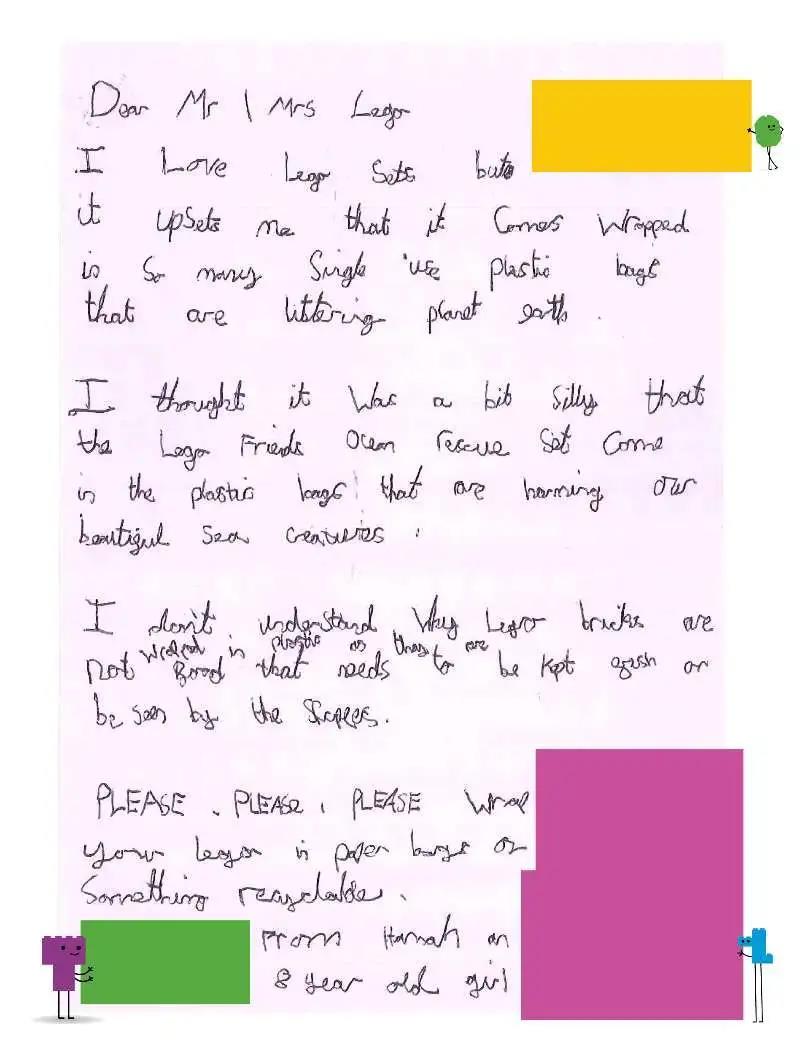 Dear Mr / Mrs Lego
I Love Lego Sets but
it upsets me that it Comes Wrapped
in So many Single use plastic bags
that are littering planet earth.
I thought it Was a bit Silly that
the Lego Friends Ocean rescue Set Come
in the plastic bags that are harming our
beautiful Sea creatures.
I don't understand Why Lego bricks are
wrapped in plastic as they are
not Food that needs to be Kept fresh or
be seen by the Shoppers.
PLEASE, PLEASE, PLEASE Wrap
your lego in paper bags or
Something recyclable.
From Hannah an
8 year old girl